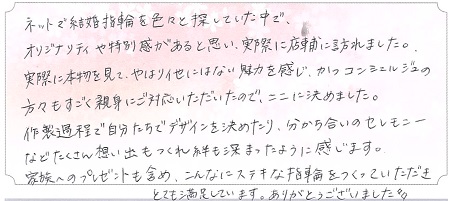 ネットで結婚指輪を色々と探していた中で、
オリジナリティや特別感があると思い、実際に店舗に訪れました。
実際に本物を見て、やはり他にはない魅力を感じ、かつコンシェルジュの
方々もすごく親身にご対応いただいたので、ここに決めました。
作製過程で自分たちでデザインを決めたり、分かち合いのセレモニー
などたくさん想い出もつくれ絆も深まったように感じます。
家族へのプレゼントも含め、こんなにステキな指輪をつくっていただき
とても満足しています。ありがとうございました